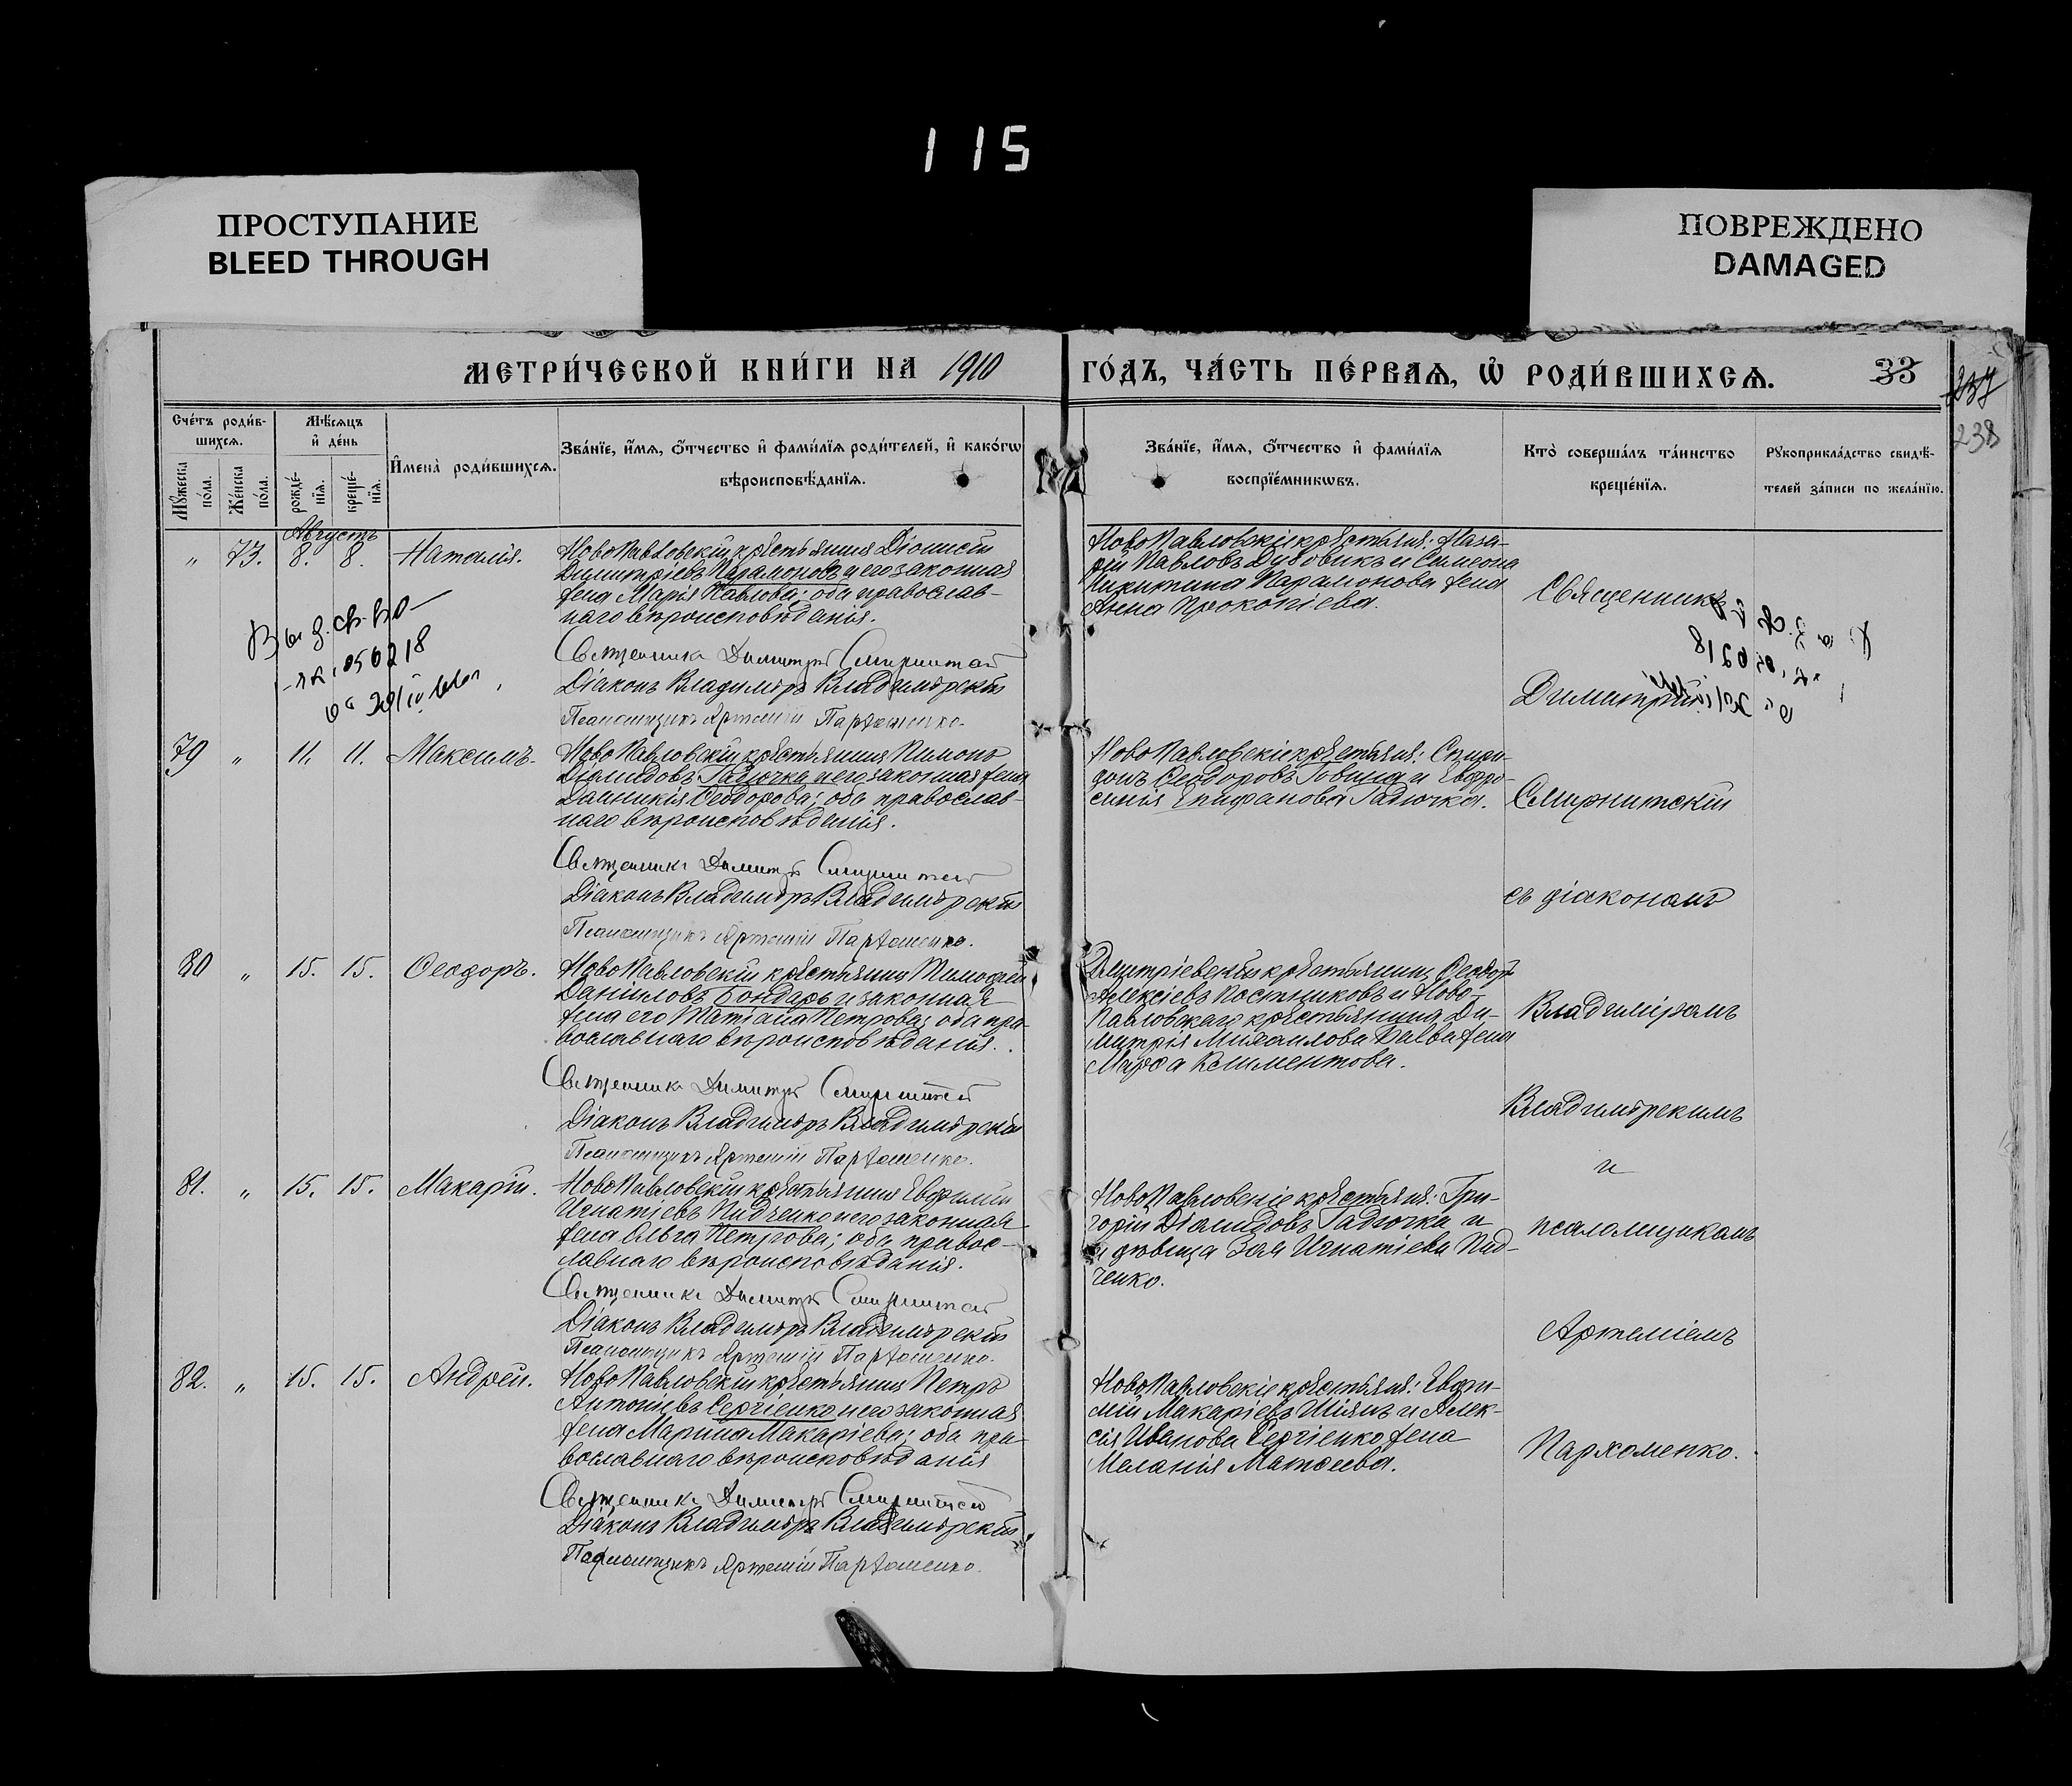 115
ПРОСТУПАНИЕ
BLEED THROUGH
ПОВРЕЖДЕНО
DAMAGED
МЕТРИ́ЧЕСКОЙ КНИ́ГИ НА 1910 ГО́ДЪ, ЧА́СТЬ ПЕ́РВАѦ, Ѡ҆ РОДИ́ВШИХСѦ.
33
238
Сче́тъ роди́в-
шихсѧ.
Мѣ́сѧцъ
и҆ де́нь
Мꙋ́жеска
по́ла.
Же́нска
по́ла.
рожде́-
нїѧ.
креще́-
нїѧ.
И҆мена̀ роди́вшихсѧ.
Зва́нїе, и҆́мѧ, ѻ҆́тчество и҆ фами́лїѧ роди́телей, и҆ како́гѡ
вѣроисповѣ́данїѧ.
Зва́нїе, и҆́мѧ, ѻ҆́тчество и҆ фами́лїѧ
воспрїе́мникѡвъ.
Кто̀ соверша́лъ та́инство
креще́нїѧ.
Рꙋкоприкла́дство свидѣ́-
телей за́писи по жела́нїю.
Августъ
„ 73. 8. 8. Наталія.
НовоПавловскій крестьянинъ Діонисій
Димитріевъ Парамоновъ и его законная
жена Марія Павлова; оба православ-
наго вѣроисповѣданія.
Священникъ Димитрій Смирнитскій
Діаконъ Владиміръ Владимірскій
Псаломщикъ Артемій Пархоменко.
НовоПавловскіе крестьяне: Наза-
рій Павловъ Дубовикъ и Симеона
Никитина Парамонова жена
Анна Прокопіева.
Выд. св-во
056218
79 „ 11. 11. Максимъ.
НовоПавловскій крестьянинъ Пимонъ
Діомидовъ Гадючка и его законная жена
Домникія Ѳеодорова; оба православ-
наго вѣроисповѣданія.
Священникъ Димитрій Смирнитскій
Діаконъ Владиміръ Владимірскій
Псаломщикъ Артемій Пархоменко.
НовоПавловскіе крестьяне: Спири-
донъ Ѳеодоровъ и Евфро-
синія Епифанова Гадючка.
80 „ 15. 15. Ѳеодоръ.
НовоПавловскій крестьянинъ Тимофей
Даніиловъ Бондарь и законная
жена его Татіана Петрова; оба пра-
вославнаго вѣроисповѣданія.
Священникъ Димитрій Смирнитскій
Діаконъ Владиміръ Владимірскій
Псаломщикъ Артемій Пархоменко.
Дмитріевскій крестьянинъ Ѳеодоръ
Алексіевъ Постниковъ и Ново-
Павловскаго крестьянина Ди-
митрія Михаилова жена
Марѳа Климентова.
81. „ 15. 15. Макарій.
НовоПавловскій крестьянинъ Евфимій
Игнатіевъ Пидченко и его законная
жена Ольга Петрова; оба правос-
лавнаго вѣроисповѣданія.
Священникъ Димитрій Смирнитскій
Діаконъ Владиміръ Владимірскій
Псаломщикъ Артемій Пархоменко.
НовоПавловскіе крестьяне: Гри-
горій Діомидовъ Гадючка и
дѣвица Зоя Игнатіева Пид-
ченко.
82. „ 15. 15. Андрей.
НовоПавловскій крестьянинъ Петръ
Антоніевъ Сергіенко и его законная
жена Марина Макаріева; оба пра-
вославнаго вѣроисповѣданія
Священникъ Димитрій Смирнитскій
Діаконъ Владиміръ Владимірскій
Псаломщикъ Артемій Пархоменко.
НовоПавловскіе крестьяне: Евфи-
мій Макаріевъ и Алек-
сія Иванова Сергіенко жена
Меланія Матѳеева.
Священникъ
Димитрій
Смирнитскій
съ діакономъ
Владиміромъ
Владимірскимъ
и
псаломщикомъ
Артеміемъ
Пархоменко.